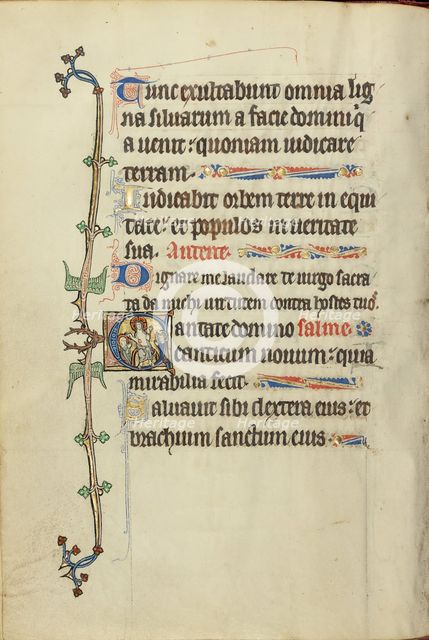 Tunc exultabunt omnia lig
na siluarum a facie domini q
a uenit: quoniam iudicare
terram.
Iudicabit orbem terre in equi
tate: et populos in ueritate
sua. Antene.
Dignare me laudare te uirgo sacra
ta da michi uirtutem contra hostes tuos.
Cantate domino salme
canticum nouum: quia
mirabilia fecit.
Saluauit sibi dextera eius: et
brachium sanctum eius.
Heritage
Heritage
Heritage
Heritage
Heritage
Heritage